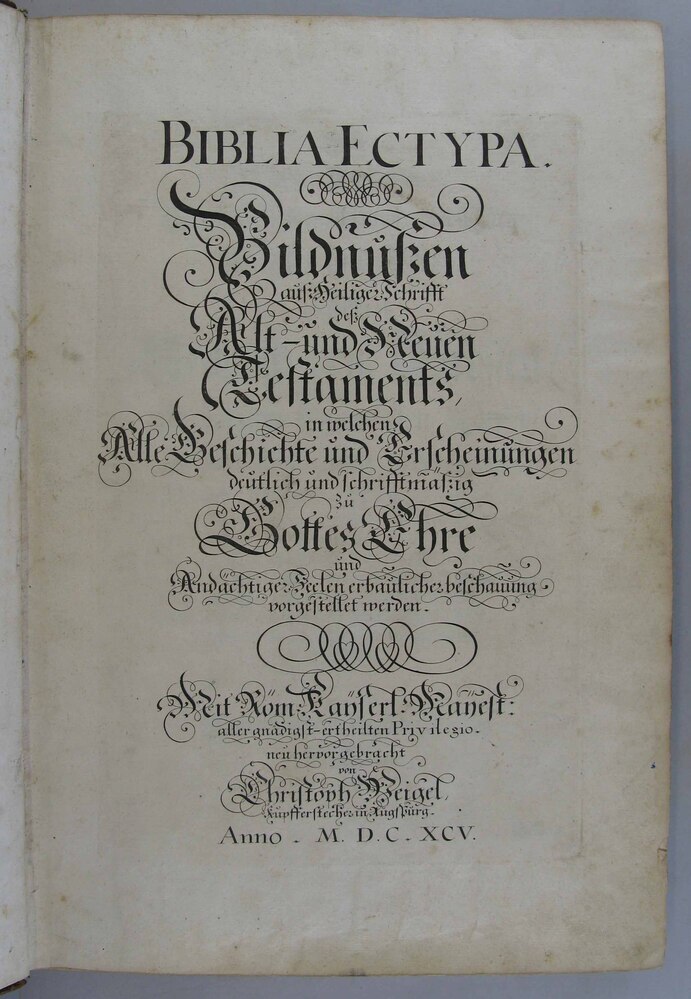 BIBLIA ECTYPA.
Bildnußen
auß Heiliger Schrifft
deß
Alt- und Neuen
Testaments,
in welchen
Alle Geschichte und Erscheinungen
deutlich und schrifftmäßig
zu
Gottes Ehre
und
Andächtiger Seelen erbaulicher beschauung
vorgestellet werden.
Mit Röm: Kayserl: Mayest:
allergnädigst-ertheilten Privilegio.
neu hervorgebracht
von
Christoph Weigel,
Kupfferstecher in Augspurg.
Anno. M. D. C. XCV.